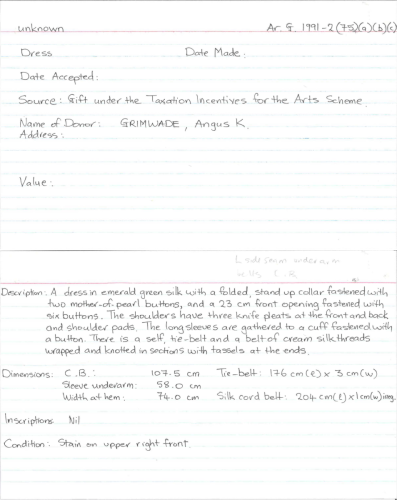 unknown Ar. G. 1991-2(75)(a)(b)(c)
Dress Date Made:
Date Accepted:
Source: Gift under the Taxation Incentives for the Arts Scheme.
Name of Donor: GRIMWADE, Angus K.
Address:
Value:
L side seam underarm
Description: A dress in emerald green silk with a folded, stand up collar fastened with
two mother-of-pearl buttons, and a 23 cm front opening fastened with
six buttons. The shoulders have three knife pleats at the front and back
and shoulder pads. The long sleeves are gathered to a cuff fastened with
a button. There is a self, tie-belt and a belt of cream silk threads
wrapped and knotted in sections with tassels at the ends.
Dimensions: C.B.: 107.5 cm Tie-belt: 176 cm (l) x 3 cm (w)
Sleeve underarm: 58.0 cm
Width at hem: 74.0 cm Silk cord belt: 204 cm (l) x 1 cm (w) irreg.
Inscriptions Nil
Condition: Stain on upper right front.